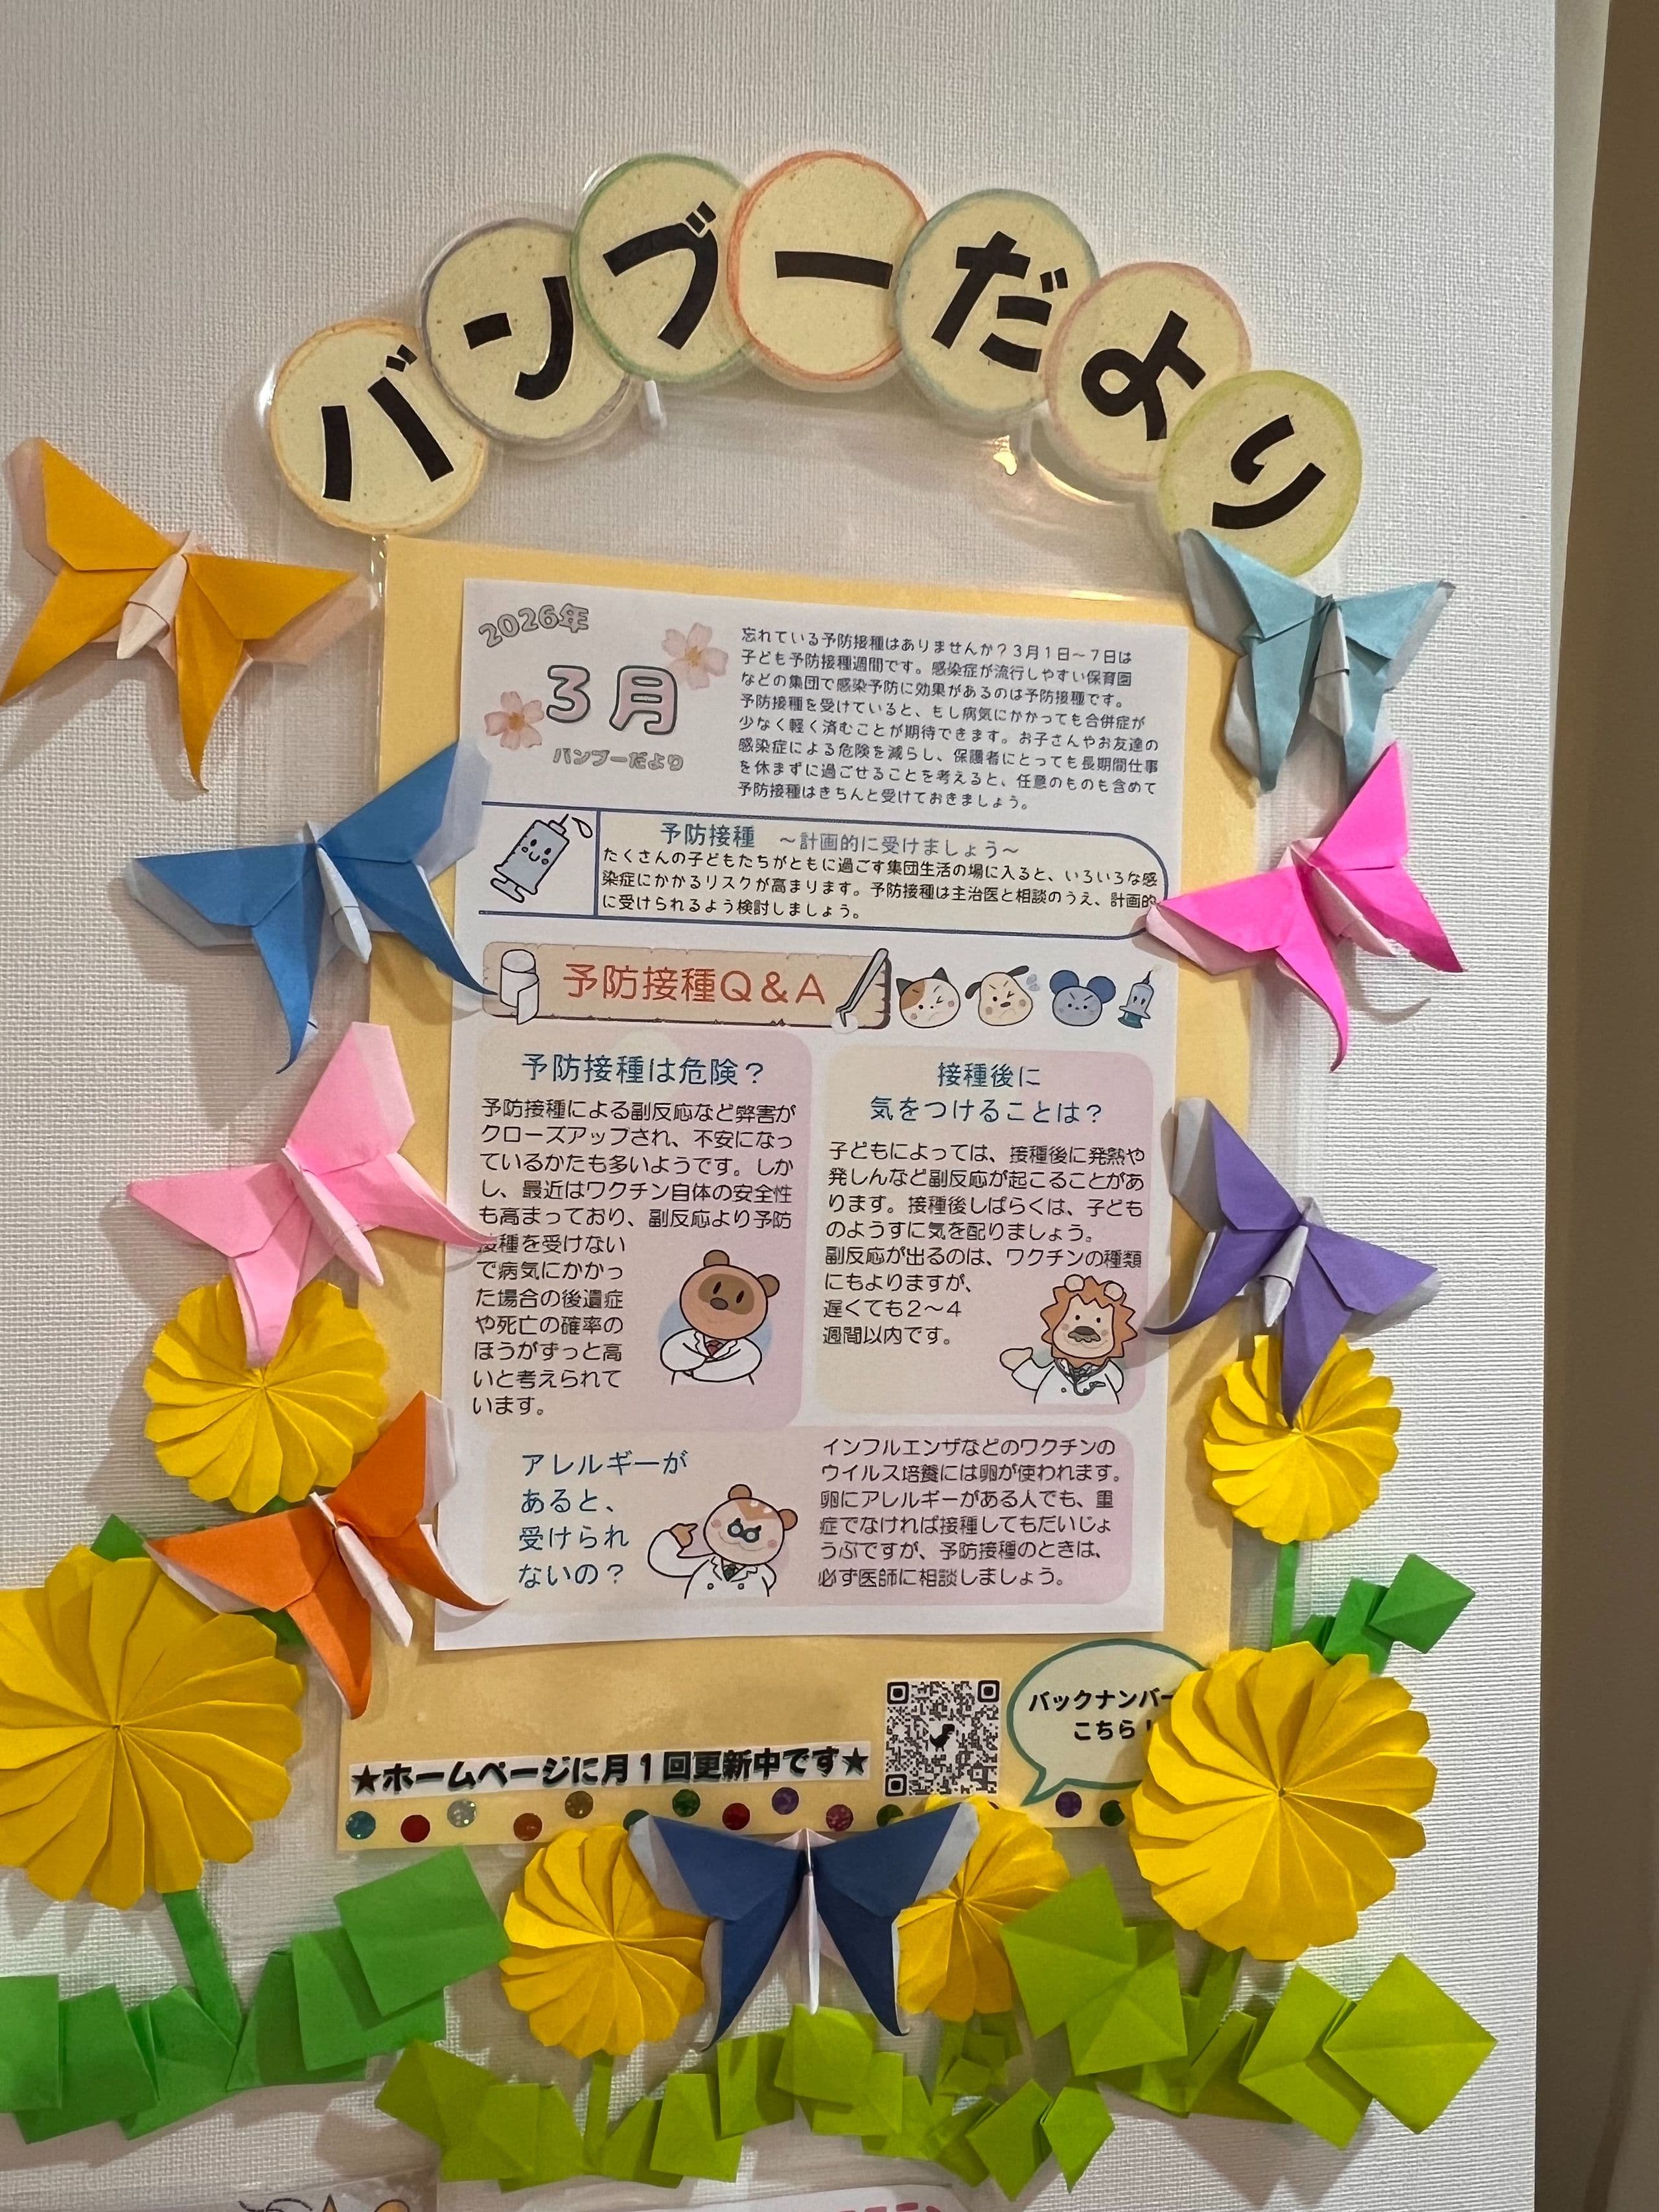 バンブーだより
2026年
3月
バンブーだより
忘れている予防接種はありませんか？3月1日～7日は
子ども予防接種週間です。感染症が流行しやすい保育園
などの集団で感染予防に効果があるのは予防接種です。
予防接種を受けていると、もし病気にかかっても合併症が
少なく軽く済むことが期待できます。お子さんやお友達の
感染症による危険を減らし、保護者にとっても長期間仕事
を休まずに過ごせることを考えると、任意のものも含めて
予防接種はきちんと受けておきましょう。
予防接種　～計画的に受けましょう～
たくさんの子どもたちがともに過ごす集団生活の場に入ると、いろいろな感
染症にかかるリスクが高まります。予防接種は主治医と相談のうえ、計画的
に受けられるよう検討しましょう。
予防接種Q＆A
予防接種は危険？
予防接種による副反応など弊害が
クローズアップされ、不安になっ
ているかたも多いようです。しか
し、最近はワクチン自体の安全性
も高まっており、副反応より予防
接種を受けない
で病気にかかっ
た場合の後遺症
や死亡の確率の
ほうがずっと高
いと考えられて
います。
接種後に
気をつけることは？
子どもによっては、接種後に発熱や
発しんなど副反応が起こることがあ
ります。接種後しばらくは、子ども
のようすに気を配りましょう。
副反応が出るのは、ワクチンの種類
にもよりますが、
遅くても2～4
週間以内です。
アレルギーが
あると、
受けられ
ないの？
インフルエンザなどのワクチンの
ウイルス培養には卵が使われます。
卵にアレルギーがある人でも、重
症でなければ接種してもだいじょ
うぶですが、予防接種のときは、
必ず医師に相談しましょう。
バックナンバー
こちら！
★ホームページに月1回更新中です★